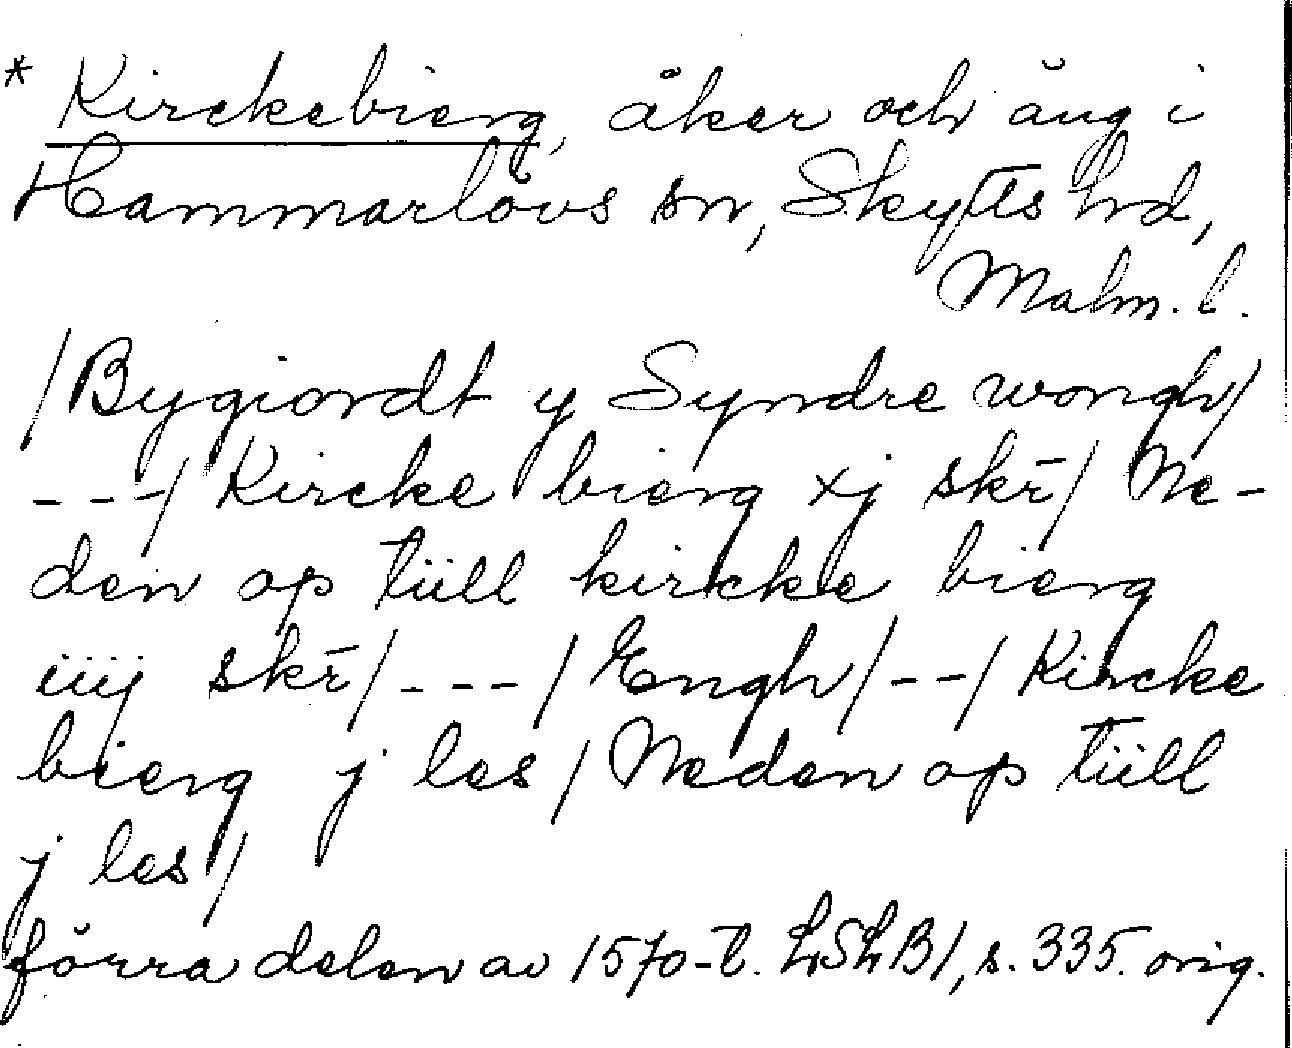 * Kirckebierg, åker och äng i
Hammarlövs sn, Skytts hd,
Malm. l.
/Bygiordt y Syndre wongh/
---/ Kircke bierg xj skr̄/ Ne-
den op tiill kircke bierg
iiij skr̄/---/Engh/--/Kircke
bierg j les/Neden op tiill
j les/
förra delen av 1570-t. LSLB1, s. 335. orig.